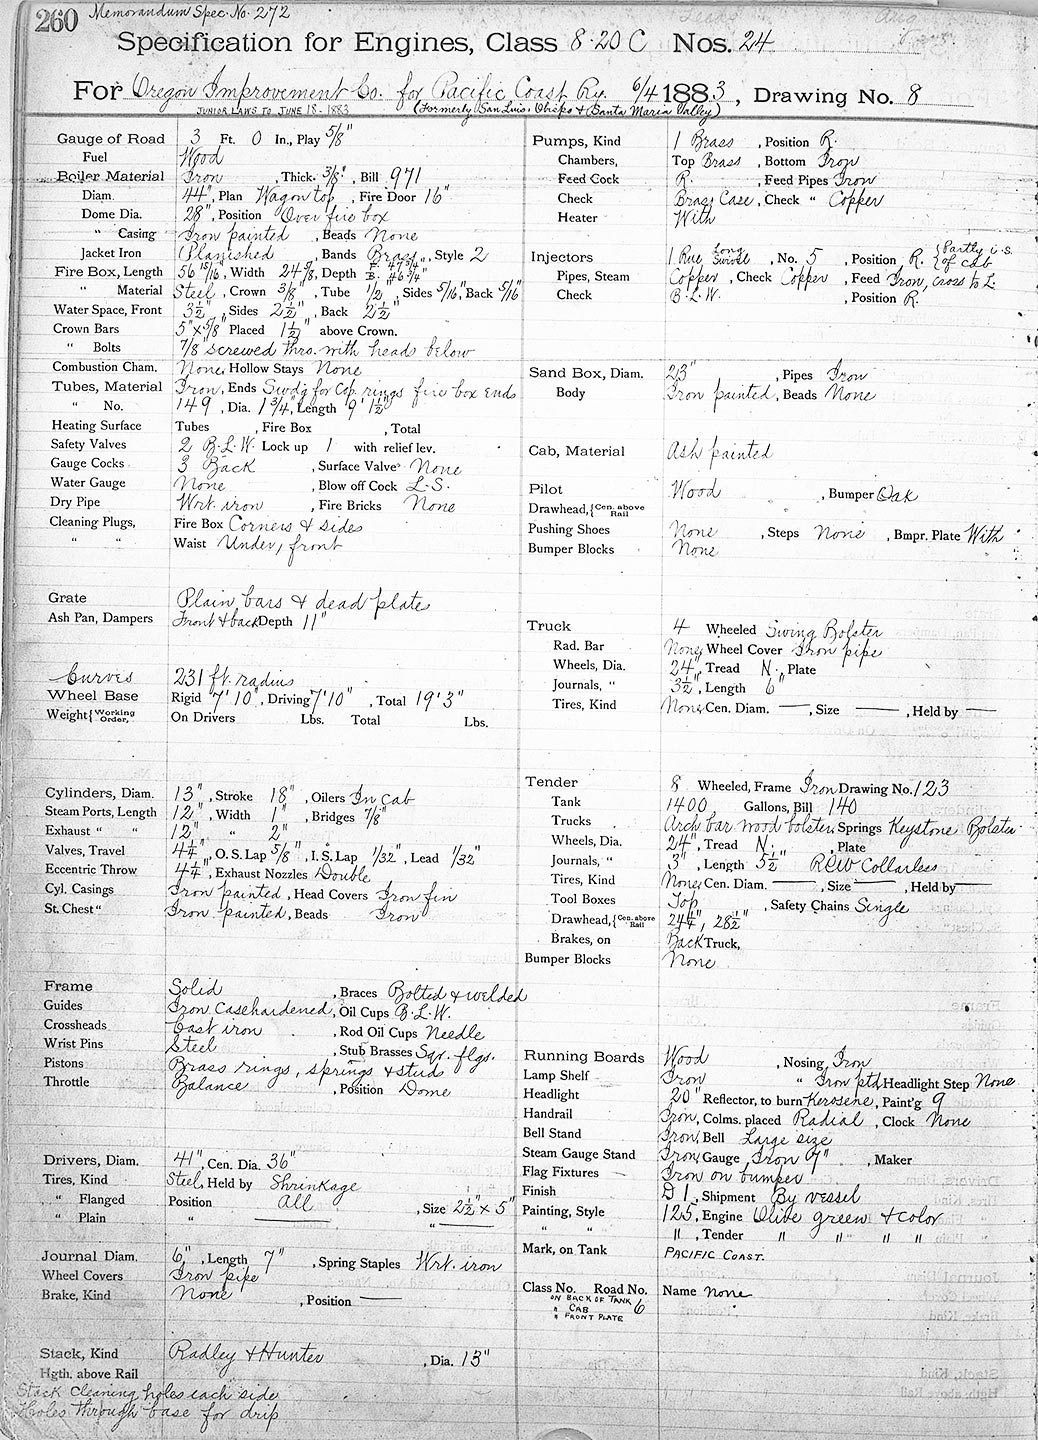 260 Memorandum Spec. No. 272
Specification for Engines, Class 8-20 C Nos. 24
For Oregon Improvement Co. for Pacific Coast Ry. 6/4 1883, Drawing No. 8
JUNIOR LAWS TO JUNE 18-1883 (Formerly San Luis Obispo & Santa Maria Valley)
Gauge of Road 3 Ft. 0 In., Play 5/8"
Fuel Wood
Boiler Material Iron, Thick. 3/8", Bill 971
Diam. 44", Plan Wagon top, Fire Door 16"
Dome Dia. 28", Position Over fire box
" Casing Iron painted, Beads None
Jacket Iron Planished, Bands Brass, Style 2
Fire Box, Length 56 15/16", Width 24 7/8, Depth F. 47 3/4" B. 46 3/4"
" Material Steel, Crown 3/8", Tube 1/2", Sides 5/16", Back 5/16"
Water Space, Front 3 1/2", Sides 2 1/2", Back 2 1/2"
Crown Bars 5" x 5/8" Placed 1 1/2" above Crown.
" Bolts 7/8" screwed thro. with heads below
Combustion Cham. None, Hollow Stays None
Tubes, Material Iron, Ends Swdg for Cop. rings fire box ends
" No. 149, Dia. 1 3/4", Length 9' 1 1/2"
Heating Surface Tubes , Fire Box , Total
Safety Valves 2 B.L.W. Lock up 1 with relief lev.
Gauge Cocks 3 Back, Surface Valve None
Water Gauge None, Blow off Cock L.S.
Dry Pipe Wrt. iron, Fire Bricks None
Cleaning Plugs, Fire Box Corners & sides
" " Waist Under, front
Grate Plain bars & dead plates
Ash Pan, Dampers Front & back Depth 11"
Curves 231 ft. radius
Wheel Base Rigid 7' 10", Driving 7' 10", Total 19' 3"
Weight { Working Order, On Drivers Lbs. Total Lbs.
Cylinders, Diam. 13", Stroke 18", Oilers In cab
Steam Ports, Length 12", Width 1", Bridges 7/8"
Exhaust " " 12" " 2"
Valves, Travel 4 1/4", O. S. Lap 5/8", I. S. Lap 1/32", Lead 1/32"
Eccentric Throw 4 1/4", Exhaust Nozzles Double
Cyl. Casings Iron painted, Head Covers Iron fin
St. Chest " Iron painted, Beads Iron
Frame Solid, Braces Bolted & welded
Guides Iron casehardened, Oil Cups B.L.W.
Crossheads Cast iron, Rod Oil Cups Needle
Wrist Pins Steel, Stub Brasses Sqr. flgs.
Pistons Brass rings, springs & studs
Throttle Balance, Position Dome
Drivers, Diam. 41", Cen. Dia. 36"
Tires, Kind Steel, Held by Shrinkage
" Flanged Position All, Size 2 1/2" x 5"
" Plain " — " —
Journal Diam. 6", Length 7", Spring Staples Wrt. iron
Wheel Covers Iron pipe
Brake, Kind None, Position —
Stack, Kind Radley & Hunter, Dia. 13"
Hgth. above Rail
Stack cleaning holes each side
Holes through base for drip
Pumps, Kind 1 Brass, Position R.
Chambers, Top Brass, Bottom Iron
Feed Cock R., Feed Pipes Iron
Check Brass Case, Check " Copper
Heater With
Injectors 1 Rue Long Swivel, No. 5, Position R. { Partly i.s. of cab
Pipes, Steam Copper, Check Copper, Feed Iron, cross to L.
Check B.L.W., Position R.
Sand Box, Diam. 23", Pipes Iron
Body Iron painted, Beads None
Cab, Material Ash painted
Pilot Wood, Bumper Oak
Drawhead, { Cen. above Rail
Pushing Shoes None, Steps None, Bmpr. Plate With
Bumper Blocks None
Truck 4 Wheeled Swing Bolster
Rad. Bar None, Wheel Cover Iron pipe
Wheels, Dia. 24", Tread N., Plate
Journals, " 3 1/2", Length 6"
Tires, Kind None, Cen. Diam. —, Size —, Held by —
Tender 8 Wheeled, Frame Iron Drawing No. 123
Tank 1400 Gallons, Bill 140
Trucks Arch bar wood bolster, Springs Keystone Bolster
Wheels, Dia. 24", Tread N., Plate
Journals, " 3", Length 5 1/2" Collarless
Tires, Kind None, Cen. Diam. —, Size —, Held by —
Tool Boxes Top, Safety Chains Single
Drawhead, { Cen. above Rail 24 1/4", 28 1/2"
Brakes, on Back Truck,
Bumper Blocks None
Running Boards Wood, Nosing Iron
Lamp Shelf Iron " Iron ptd, Headlight Step None
Headlight 20" Reflector, to burn Kerosene, Paint'g 9
Handrail Iron, Colms. placed Radial, Clock None
Bell Stand Iron, Bell Large size
Steam Gauge Stand Iron, Gauge Iron 7", Maker
Flag Fixtures Iron on bumper
Finish D 1, Shipment By vessel
Painting, Style 125, Engine Olive green & color
" " ", Tender " " " "
Mark, on Tank PACIFIC COAST.
Class No. Road No. Name None
ON BACK OF TANK
" CAB 6
" FRONT PLATE